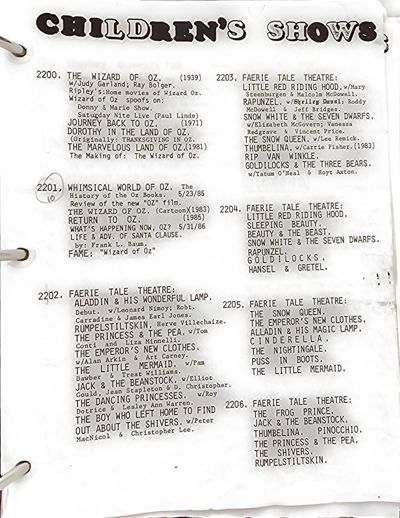 CHILDREN'S SHOWS
2200. THE WIZARD OF OZ. (1939)
w/Judy Garland; Ray Bolger.
Ripley's:Home movies of Wizard Oz.
Wizard of Oz spoofs on:
Donny & Marie Show.
Saturday Nite Live (Paul Linde)
JOURNEY BACK TO OZ. (1971)
DOROTHY IN THE LAND OF OZ.
(Originally: THANKSGIVING IN OZ.
THE MARVELOUS LAND OF OZ.(1981)
The Making of: The Wizard of Oz.
2201, WHIMSICAL WORLD OF OZ. The
10
History of the Oz Books. 5/23/85
Review of the new "OZ" film.
THE WIZARD OF OZ. (Cartoon)(1983)
RETURN TO OZ. (1985)
WHAT'S HAPPENING NOW, OZ? 5/31/86
LIFE & ADV. OF SANTA CLAUSE.
by: Frank L. Baum.
FAME: "Wizard of Oz"
2202. FAERIE TALE THEATRE:
ALADDIN & HIS WONDERFUL LAMP.
Debut. w/Leonard Nimoy; Robt.
Carradine & James Earl Jones.
RUMPELSTILTSKIN. Herve Villechaize.
THE PRINCESS & THE PEA. w/Tom
Conti and Liza Minnelli.
THE EMPEROR'S NEW CLOTHES.
w/Alan Arkin & Art Carney.
THE LITTLE MERMAID. w/Pam
Dawber & Treat Williams.
JACK & THE BEANSTOCK. w/Elliot
Gould, Jean Stapleton & D. Christopher.
THE DANCING PRINCESSES. w/Roy
Dotrice & Lesley Ann Warren.
THE BOY WHO LEFT HOME TO FIND
OUT ABOUT THE SHIVERS. w/Peter
MacNicol & Christopher Lee.
2203. FAERIE TALE THEATRE:
LITTLE RED RIDING HOOD. w/Mary
Steenburgen & Malcolm McDowell.
RAPUNZEL. w/Shelley Duval; Roddy
McDowell & Jeff Bridges.
SNOW WHITE & THE SEVEN DWARFS.
w/Elizabeth McGovern; Vanessa
Redgrave & Vincent Price.
THE SNOW QUEEN. w/Lee Remick.
THUMBELINA. w/Carrie Fisher.(1983)
RIP VAN WINKLE.
GOLDILOCKS & THE THREE BEARS.
w/Tatum O'Neal & Hoyt Axton.
2204. FAERIE TALE THEATRE:
LITTLE RED RIDING HOOD.
SLEEPING BEAUTY.
BEAUTY & THE BEAST.
SNOW WHITE & THE SEVEN DWARFS.
RAPUNZEL
GOLDILOCKS.
HANSEL & GRETEL.
2205. FAERIE TALE THEATRE:
THE SNOW QUEEN.
THE EMPEROR'S NEW CLOTHES.
ALLADIN & HIS MAGIC LAMP.
CINDERELLA.
THE NIGHTINGALE.
PUSS IN BOOTS.
THE LITTLE MERMAID.
2206. FAERIE TALE THEATRE:
THE FROG PRINCE.
JACK & THE BEANSTOCK.
THUMBELINA. PINOCCHIO.
THE PRINCESS & THE PEA.
THE SHIVERS.
RUMPELSTILTSKIN.